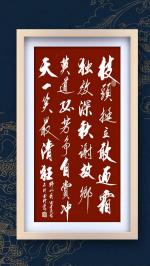 枝頭挺立敢迎霜
独放深秋谢故鄉
莫道芳争自賞冲
天一笑最清狂